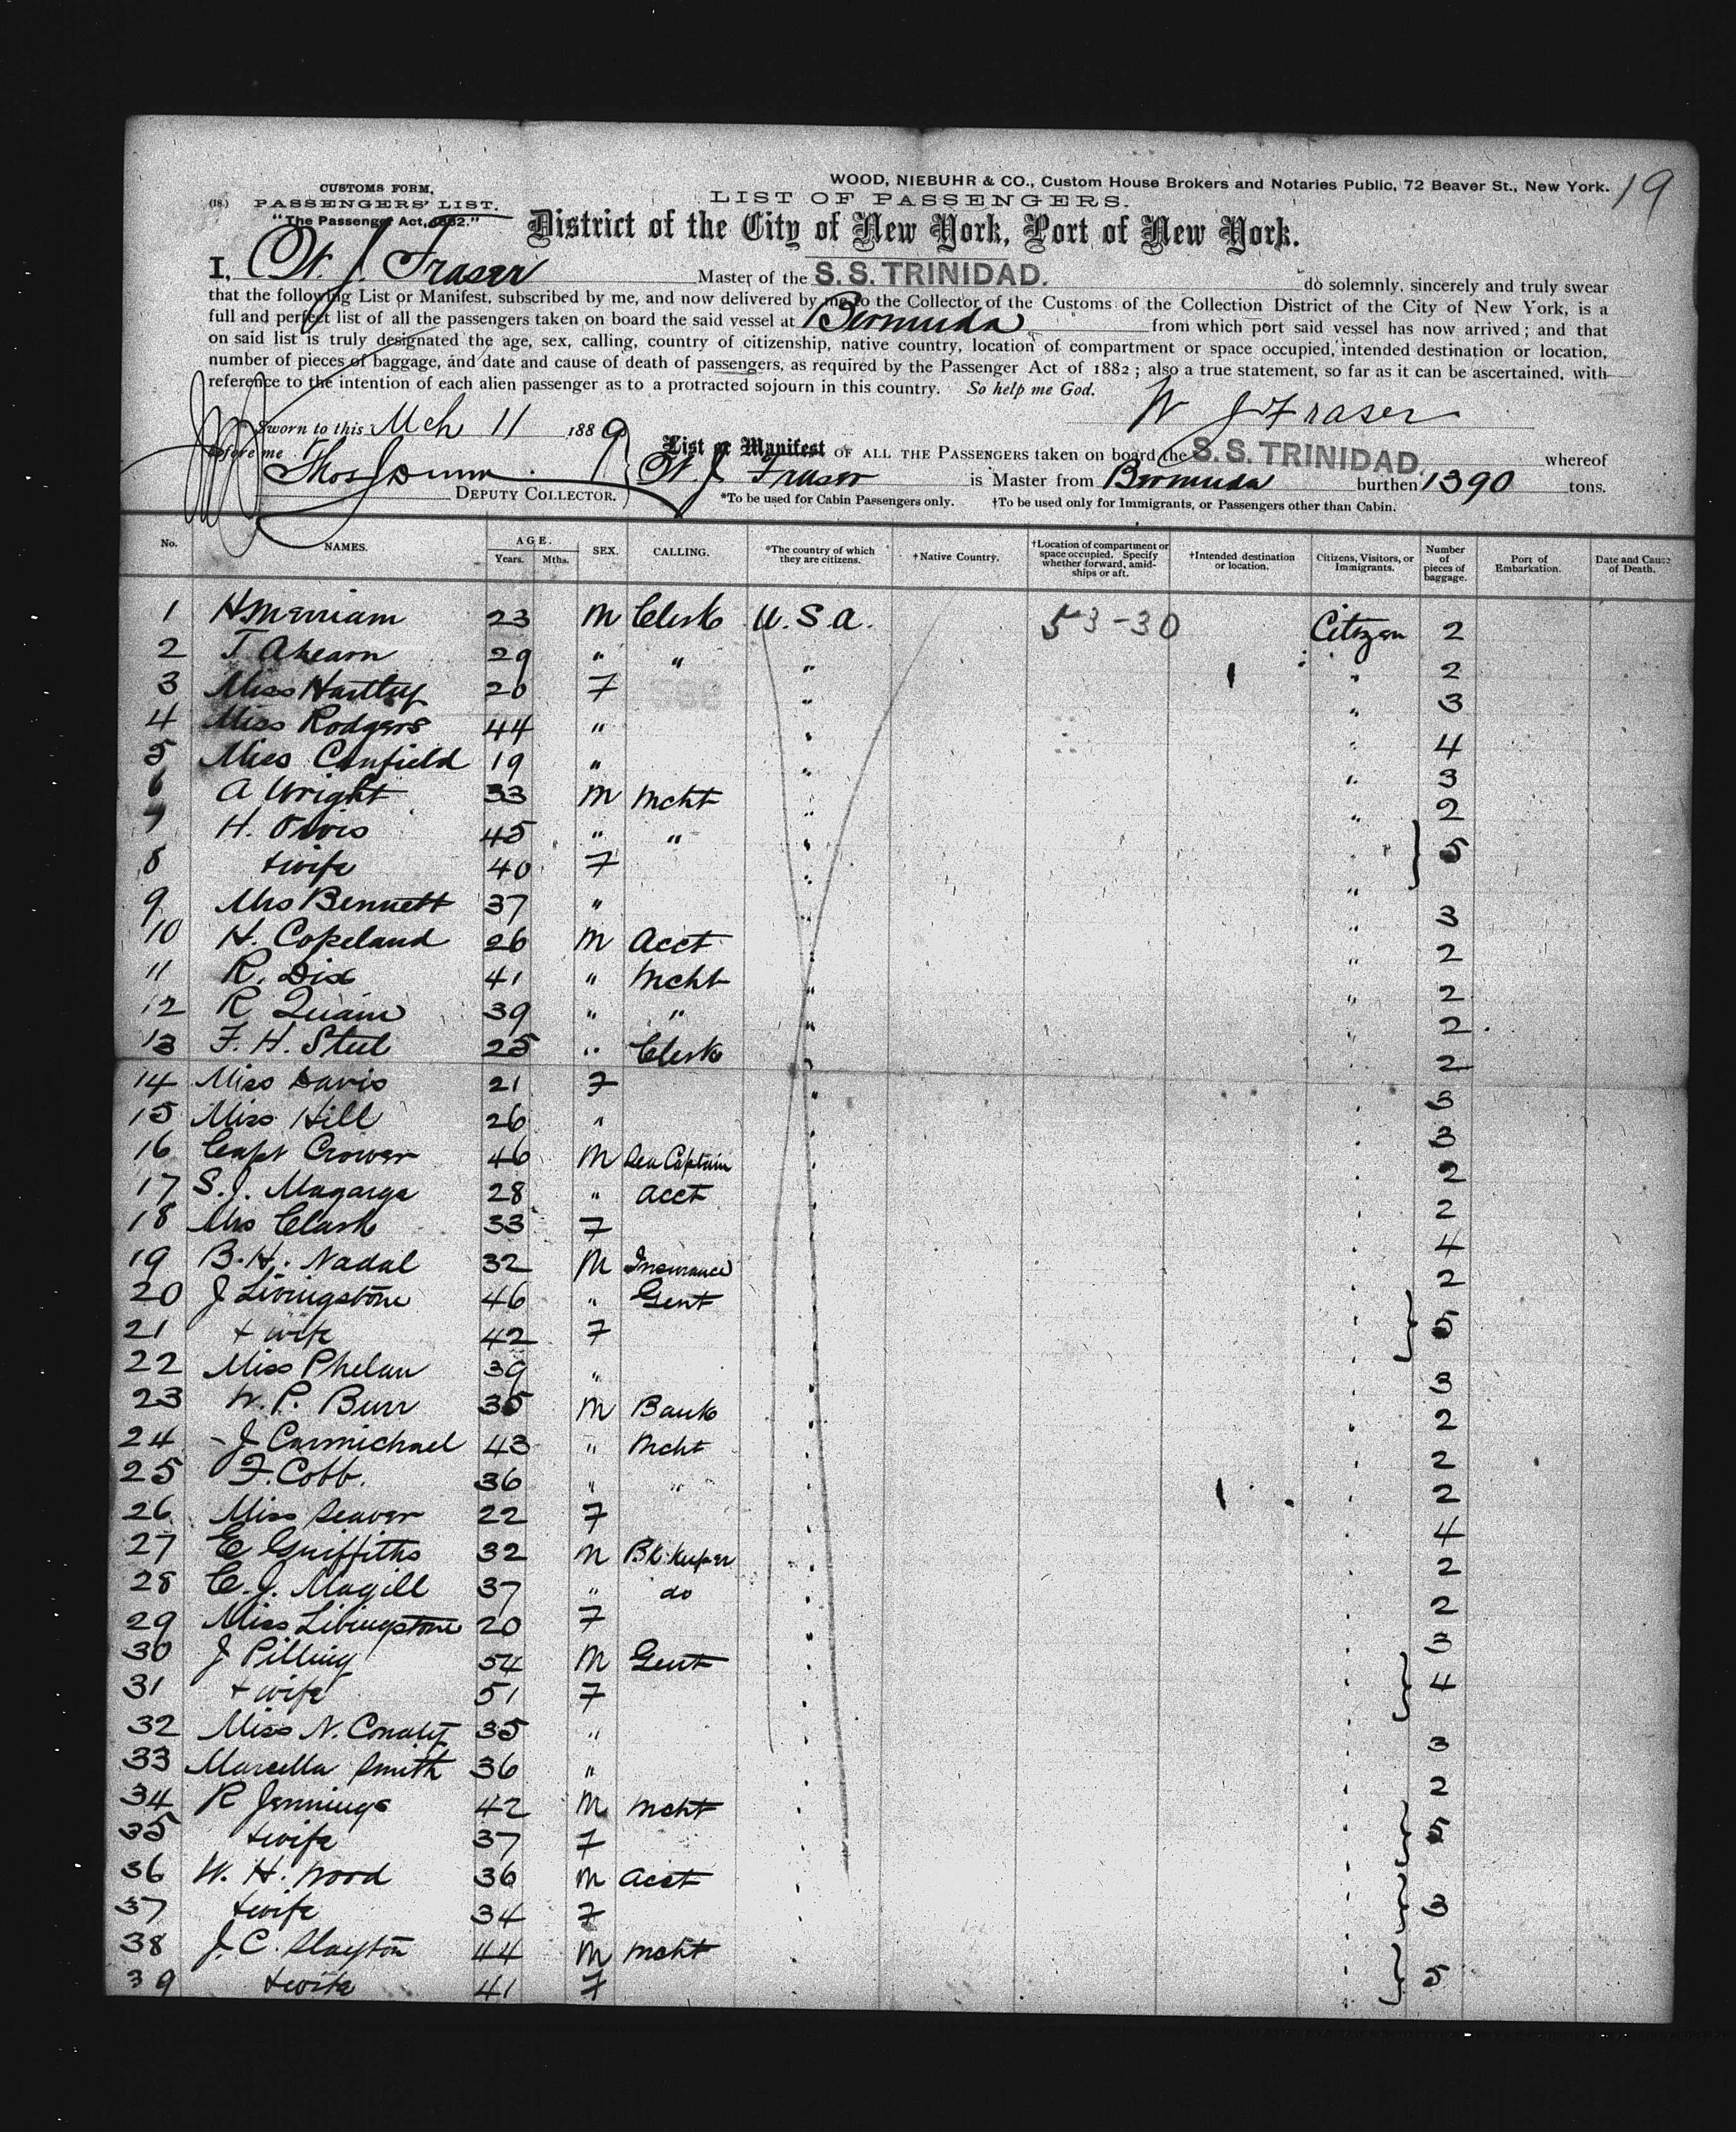 WOOD, NIEBUHR & CO., Custom House Brokers and Notaries Public, 72 Beaver St., New York.
19
CUSTOMS FORM,
(18.) PASSENGERS' LIST.
"The Passenger Act, 1882."
LIST OF PASSENGERS.
District of the City of New York, Port of New York.
I, W. J. Fraser Master of the S. S. TRINIDAD. do solemnly, sincerely and truly swear
that the following List or Manifest, subscribed by me, and now delivered by me to the Collector of the Customs of the Collection District of the City of New York, is a
full and perfect list of all the passengers taken on board the said vessel at Bermuda from which port said vessel has now arrived; and that
on said list is truly designated the age, sex, calling, country of citizenship, native country, location of compartment or space occupied, intended destination or location,
number of pieces of baggage, and date and cause of death of passengers, as required by the Passenger Act of 1882; also a true statement, so far as it can be ascertained, with
reference to the intention of each alien passenger as to a protracted sojourn in this country. So help me God.
W J Fraser
Sworn to this Mch 11 1889
before me
Thos Dunn
DEPUTY COLLECTOR.
List or Manifest OF ALL THE PASSENGERS taken on board the S. S. TRINIDAD. whereof
W. J. Fraser is Master from Bermuda burthen 1390 tons.
*To be used for Cabin Passengers only. †To be used only for Immigrants, or Passengers other than Cabin.
No. NAMES. AGE. Years. Mths. SEX. CALLING. *The country of which they are citizens. †Native Country. †Location of compartment or space occupied. Specify whether forward, amidships or aft. †Intended destination or location. Citizens, Visitors, or Immigrants. Number of pieces of baggage. Port of Embarkation. Date and Cause of Death.
1 H Merriam 23 M Clerk U. S. A. 53-30 Citizen 2
2 T Ahearn 29 " " " " 2
3 Miss Hartley 20 F " " 3
4 Miss Rodgers 44 " " " 4
5 Miss Canfield 19 " " " 3
6 A Wright 33 M Mcht " " 2
7 H. Orvis 45 " " " " 5
8 + wife 40 F " "
9 Mrs Bennett 37 " " " 3
10 H. Copeland 26 M Acct " " 2
11 R. Dix 41 " Mcht " " 2
12 R Quain 39 " " " " 2
13 F. H. Steel 25 " Clerk " " 2
14 Miss Davis 21 F " " 3
15 Miss Hill 26 " " " 3
16 Capt Crower 46 M Sea Captain " " 2
17 S. J. Magarge 28 " Acct " " 2
18 Mrs Clark 33 F " " 4
19 B. H. Nadal 32 M Insurance " " 2
20 J Livingstone 46 " Gent " " 5
21 + wife 42 F " "
22 Miss Phelan 39 " " " 3
23 W. P. Burr 35 M Bank " " 2
24 J Carmichael 43 " Mcht " " 2
25 F. Cobb. 36 " " " " 2
26 Miss Seaver 22 F " " 4
27 E Griffiths 32 M Bk. Keeper " " 2
28 C. J. Magill 37 " do " " 2
29 Miss Livingstone 20 F " " 3
30 J Pilling 54 M Gent " " 4
31 + wife 51 F " "
32 Miss N. Conaty 35 " " " 3
33 Marcella Smith 36 " " " 2
34 R Jennings 42 M Mcht " " 5
35 + wife 37 F " "
36 W. H. Wood 36 M Acct " " 3
37 + wife 34 F " "
38 J. C. Slayton 44 M Mcht " " 5
39 + wife 41 F " "